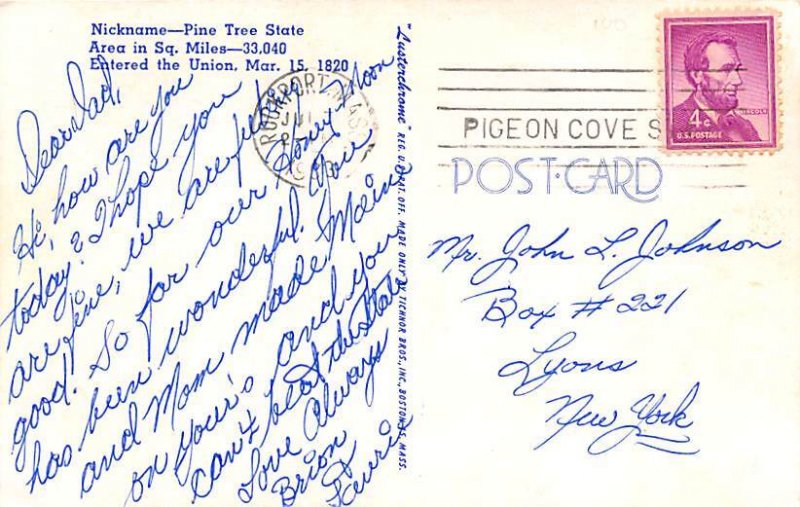 Nickname—Pine Tree State
Area in Sq. Miles—33.040
Entered the Union, Mar. 15, 1820
Dear Dad,
Hi, how are you
today? I hope you
are fine, we are feeling
good. So far our Honey Moon
has been wonderful. You
and Mom made Maine
on your's and you
can't beat the State
Love Always
Brion
&
Laurie
"Lusterchrome" REG. U.S. PAT. OFF. MADE ONLY BY TICHNOR BROS., INC., BOSTON 15, MASS.
ROCKPORT, MASS
PIGEON COVE S
4¢
LINCOLN
U.S. POSTAGE
POST-CARD
Mr. John L. Johnson
Box # 221
Lyons
New York